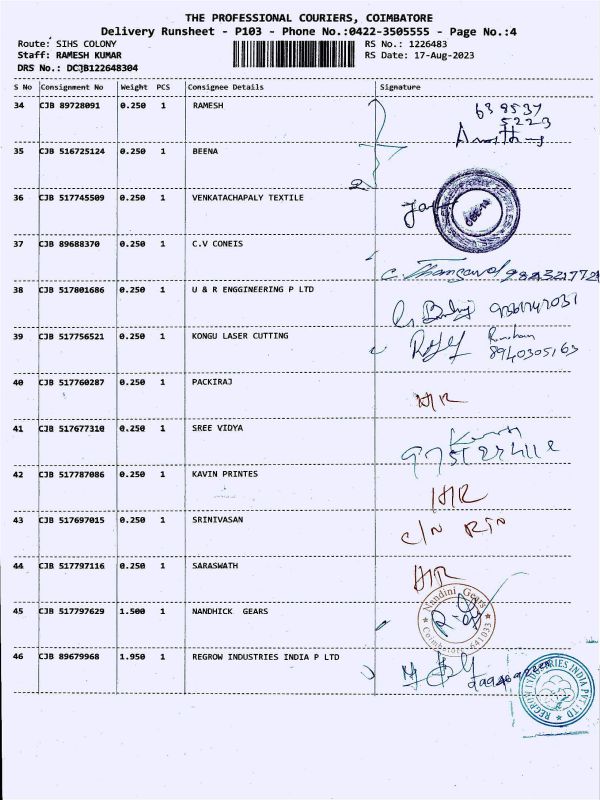 THE PROFESSIONAL COURIERS, COIMBATORE
Delivery Runsheet - P103 - Phone No.:0422-3505555 - Page No.:4
Route: SIHS COLONY
RS No.: 1226483
Staff: RAMESH KUMAR
RS Date: 17-Aug-2023
DRS No.: DCJB122648304
S No Consignment No Weight PCS Consignee Details Signature
34 CJB 89728091 0.250 1 RAMESH
35 CJB 516725124 0.250 1 BEENA
36 CJB 517745509 0.250 1 VENKATACHAPALY TEXTILE
37 CJB 89688370 0.250 1 C.V CONEIS
38 CJB 517801686 0.250 1 U & R ENGGINEERING P LTD
39 CJB 517756521 0.250 1 KONGU LASER CUTTING
8940305163
40 CJB 517760287 0.250 1 PACKIRAJ
41 CJB 517677310 0.250 1 SREE VIDYA
42 CJB 517787086 0.250 1 KAVIN PRINTES
43 CJB 517697015 0.250 1 SRINIVASAN
C/N RTN
44 CJB 517797116 0.250 1 SARASWATH
45 CJB 517797629 1.500 1 NANDHICK GEARS
Nandini Gears
Coimbatore - 641033
46 CJB 89679968 1.950 1 REGROW INDUSTRIES INDIA P LTD
REGROW INDUSTRIES INDIA PVT LTD